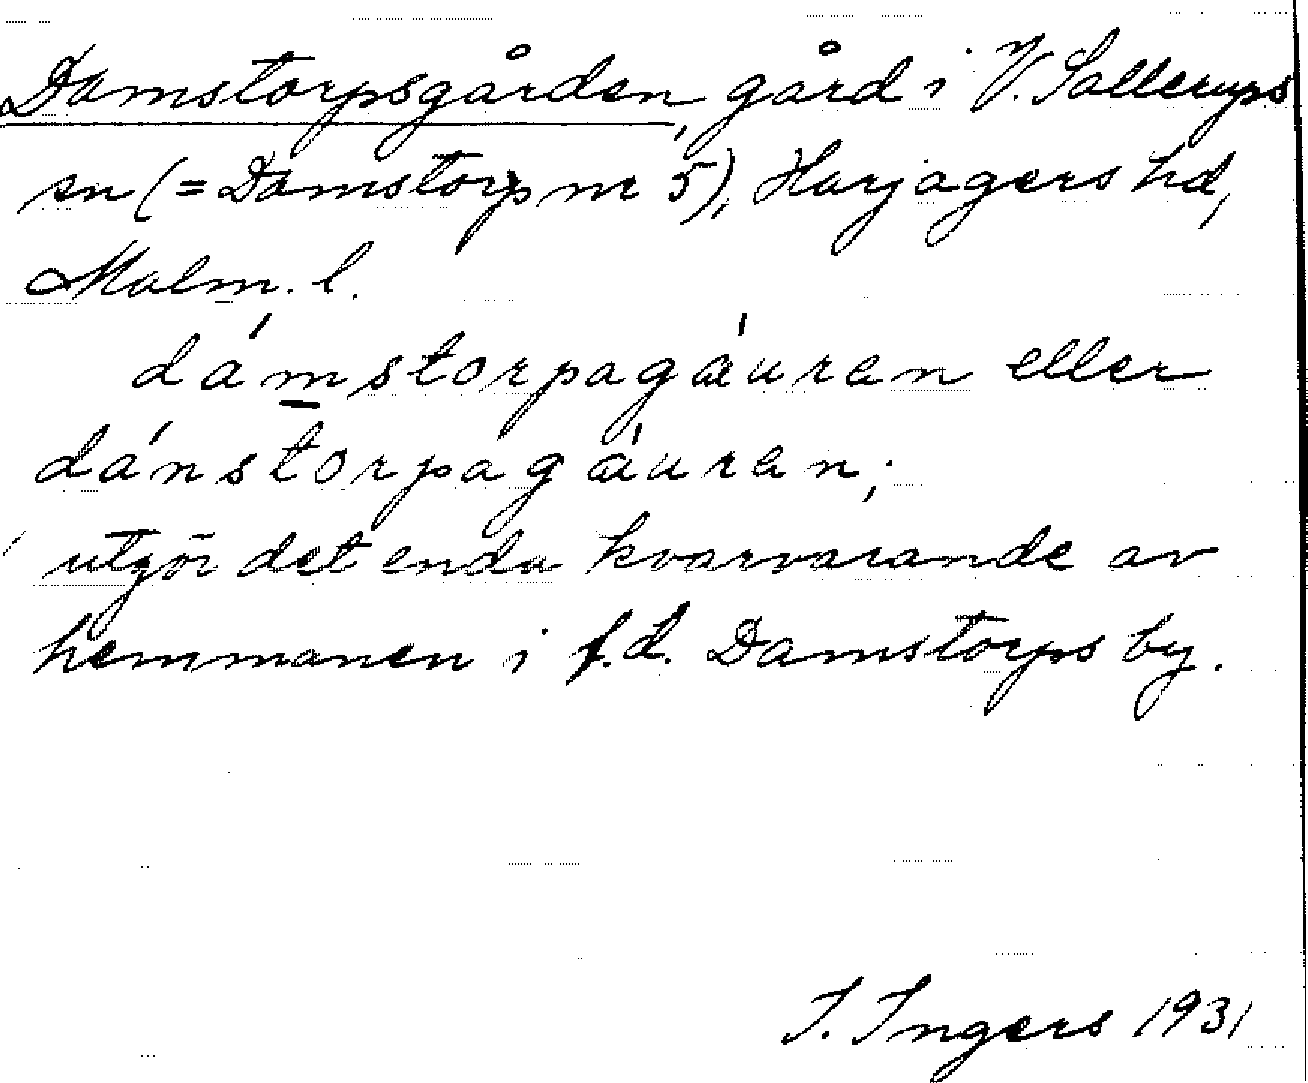 Damstorpsgården, gård i V. Sallerups
sn (= Damstorp nr 5), Harjagers hd,
Malm. l.
dám̲storpagǽuran eller
dánstorpagǽuran;
utgör det enda kvarvarande av
hemmanen i f.d. Damstorps by.
I. Ingers 1931